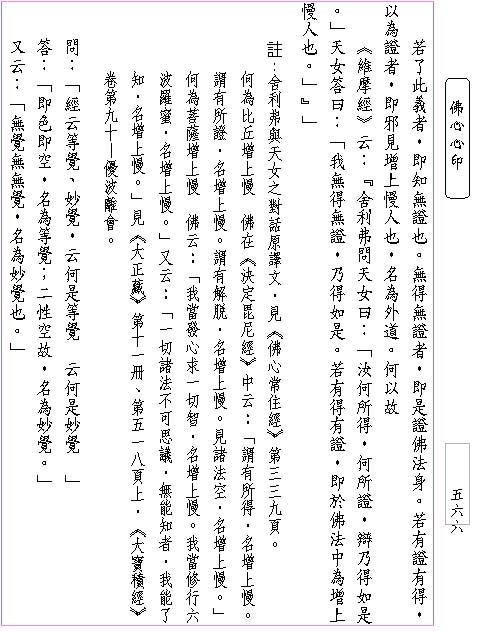 佛心心印
五六六
若了此義者，即知無證也。無得無證者，即是證佛法身。若有證有得，
以為證者，即邪見增上慢人也，名為外道。何以故
《維摩經》云：『舍利弗問天女曰：「汝何所得，何所證，辯乃得如是
。」天女答曰：「我無得無證，乃得如是。若有得有證，即於佛法中為增上
慢人也。」』」
註：舍利弗與天女之對話原譯文，見《佛心常住經》第三三九頁。
何為比丘增上慢　佛在《決定毘尼經》中云：「謂有所得，名增上慢。
謂有所證，名增上慢。謂有解脫，名增上慢。見諸法空，名增上慢。」
何為菩薩增上慢　佛云：「我當發心求一切智，名增上慢。我當修行六
波羅蜜，名增上慢。」又云：「一切諸法不可思議，無能知者，我能了
知，名增上慢。」見《大正藏》第十一冊、第五一八頁上，《大寶積經》
卷第九十—優波離會。
問：「經云等覺、妙覺，云何是等覺　云何是妙覺　」
答：「即色即空，名為等覺；二性空故，名為妙覺。」
又云：「無覺無無覺，名為妙覺也。」